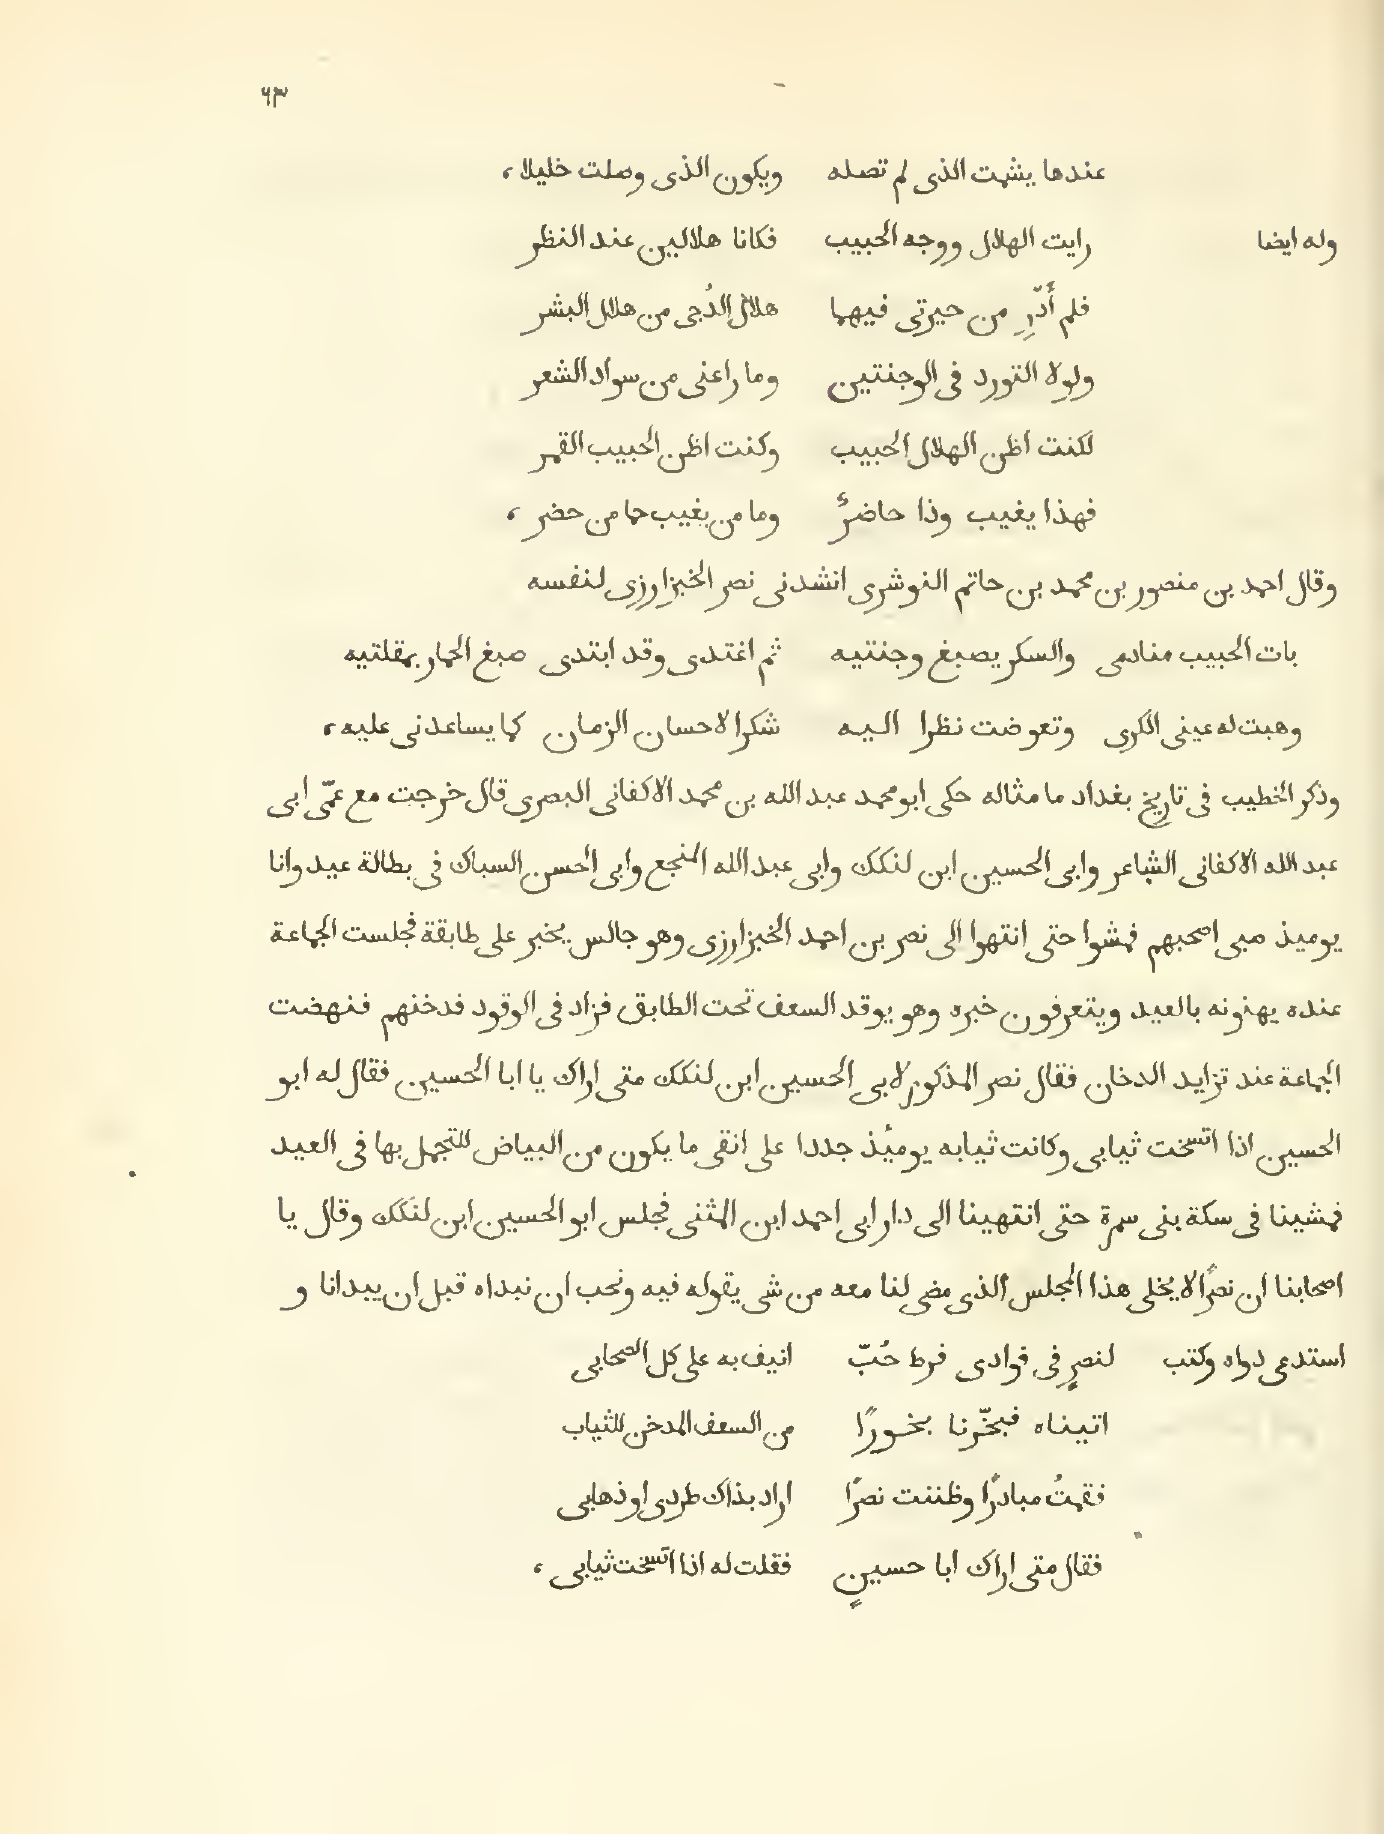 ٦٣
عندها يشمت الذى لم تصله ويكون الذى وصلت خليلا،
وله ايضا رايت الهلال ووجه الحبيب فكانا هلالين عند النظر
فلم أَدّرِ من حيرتى فيهما هلال الدُجى من هلال البشر
ولولا التورد فى الوجنتين وما راعنى من سواد الشعر
لكنت اظن الهلال الحبيب وكنت اظن الحبيب القمر
فهذا يغيب وذا حاضرٌ وما من يغيب كما من حضر،
وقال احمد بن منصور بن محمد بن حاتم النوشرى انشدنى نصر الخبزارزى لنفسه
بات الحبيب منادمى والسكر يصبغ وجنتيه ثم اغتدى وقد ابتدى صبغ الخمار بمقلتيه
وهبت له عينى الكرى وتعوضت نظرا اليه شكرا لاحسان الزمان كما يساعدنى عليه،
وذكر الخطيب فى تاريخ بغداد ما مثاله حكى ابو محمد عبد الله بن محمد الاكفانى البصرى قال خرجت مع عمّى ابى
عبد الله الاكفانى الشاعر وابى الحسين ابن لنكك وابى عبد الله المفجع وابى الحسن السباك فى بطالة عيد وانا
يوميذ صبى اصحبهم فمشوا حتى انتهوا الى نصر بن احمد الخبزارزى وهو جالس يخبز على طابقة فجلست الجماعة
عنده يهنونه بالعيد ويتعرفون خبره وهو يوقد السعف تحت الطابق فزاد فى الوقود فدخنهم فنهضت
الجماعة عند تزايد الدخان فقال نصر المذكور لابى الحسين ابن لنكك متى اراك يا ابا الحسين فقال له ابو
الحسين اذا اتسخت ثيابى وكانت ثيابه يومئذ جددا على انقى ما يكون من البياض للتجمل بها فى العيد
فمشينا فى سكة بنى سمرة حتى انتهينا الى دار ابى احمد ابن المثنى فجلس ابو الحسين ابن لنكك وقال يا
اصحابنا ان نصرًا لا يخلى هذا المجلس الذى مضى لنا معه من شى يقوله فيه ونحب ان نبداه قبل ان يبدانا و
استدعى دواه وكتب لنصرٍ فى فوادى فرط حُبّ انيف به على كل الصحابى
اتيناه فبخّرنا بخورًا من السعف المدخن للثياب
فقمتُ مبادرًا وظننت نصرًا اراد بذاك طردى او ذهابى
فقال متى اراك ابا حسينٍ فقلت له اذا اتسخت ثيابى،